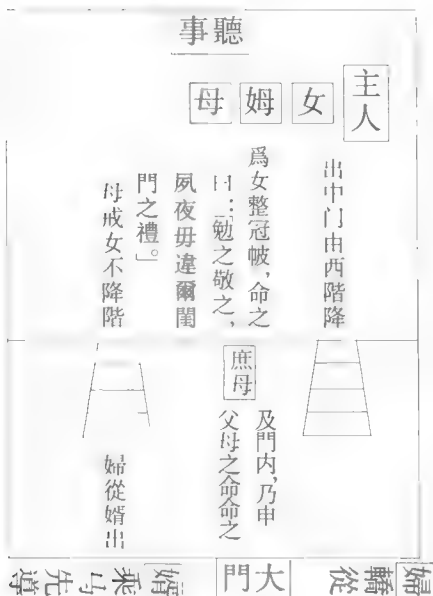 聽事
主人
女
姆
母
出中门由西階降
爲女整冠帔，命之
曰：「勉之敬之，
夙夜毋違爾閨
門之禮。」
母戒女不降階
庶母
及門内，乃申
父母之命命之
婦從婿出
婦轎從
大門
婿乘马先導